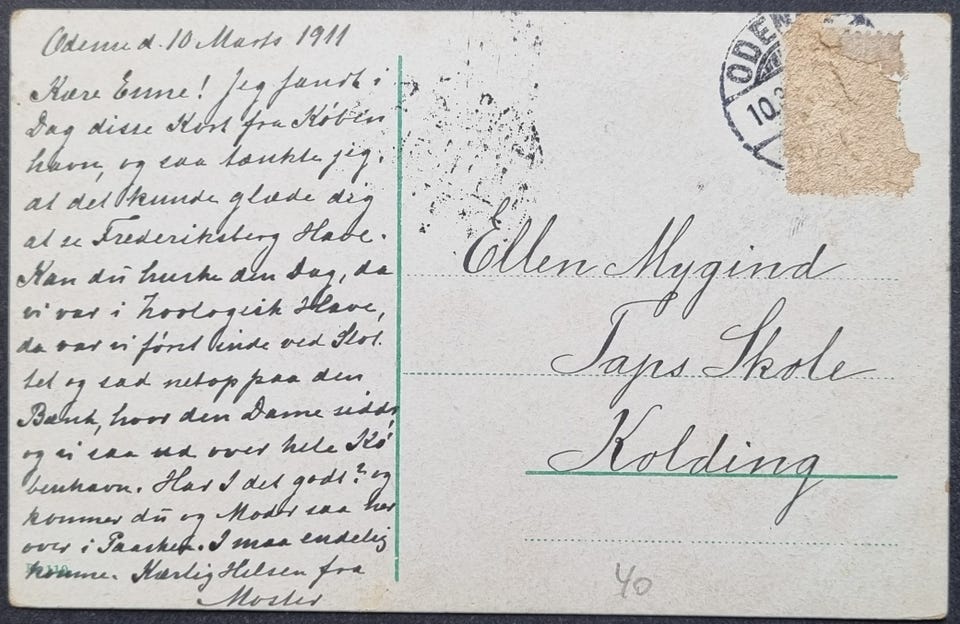 Odense d. 10 Marts 1911
Kære Enne! Jeg fandt i
Dag disse Kort fra Köben
havn, og saa tænkte jeg,
at det kunde glæde dig
at se Frederiksberg Have.
Kan du huske den Dag, da
vi var i Zoologisk Have,
da var vi först inde ved Slot
tet og sad netop paa den
Bænk, hvor den Dame sidder,
og vi saa ud over hele Kö
benhavn. Har I det godt? og
kommer du og Moder saa her
over i Paasken. I maa endelig
komme. Kærlig Hilsen fra
Moster
ODEN
10.3
Ellen Mygind
Taps Skole
Kolding
40